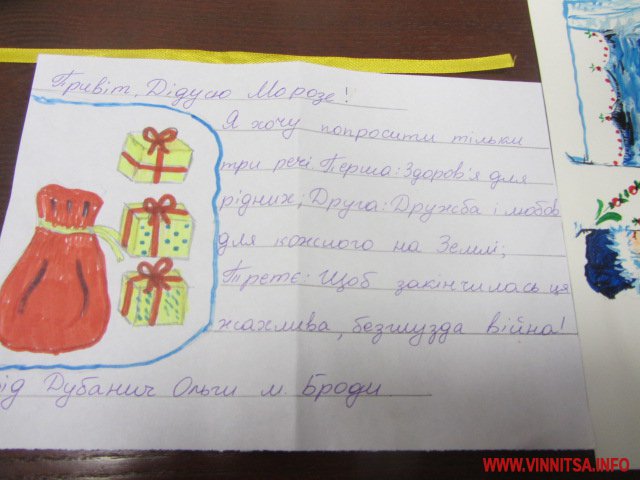 Привіт, Дідусю Морозе!
Я хочу попросити тільки
три речі. Перша: Здоров'я для
рідних; Друга: Дружба і любов
для кожного на Землі;
Третє: Щоб закінчилась ця
жахлива, безглузда війна!
від Дубанич Ольги м. Броди
WWW.VINNITSA.INFO